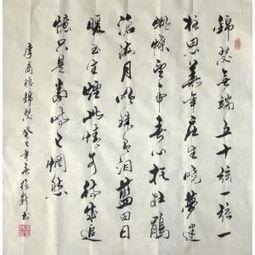 錦瑟無端五十弦一弦一
柱思華年莊生曉夢迷
蝴蝶望帝春心托杜鵑
滄海月明珠有淚藍田日
暖玉生煙此情可待成追
憶只是當時已惘然
李商隱錦瑟 癸巳年